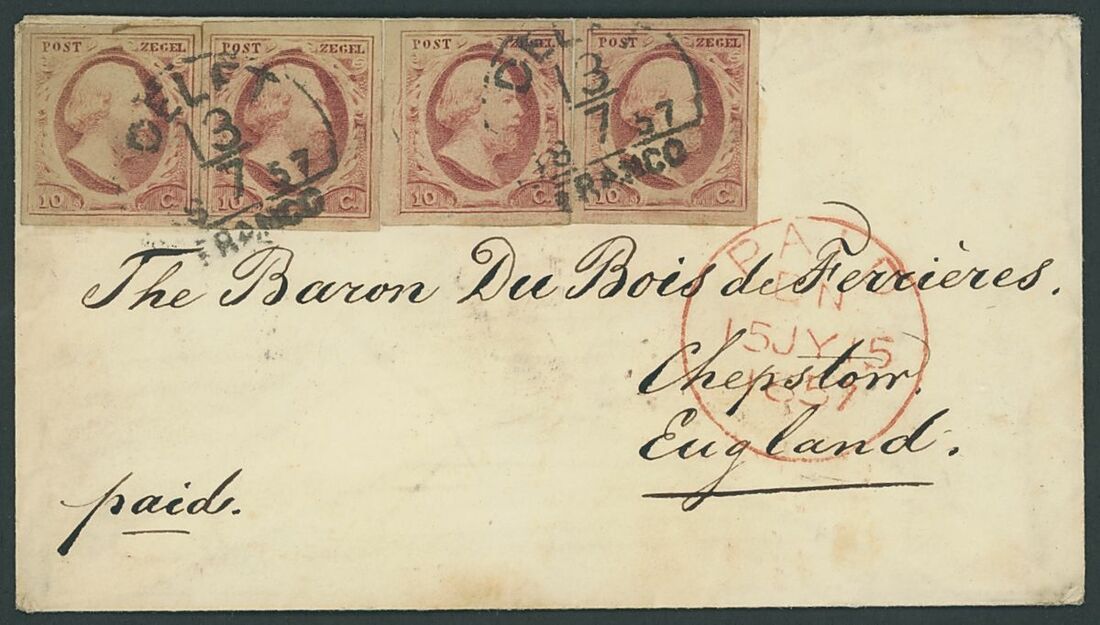 POST ZEGEL POST ZEGEL POST ZEGEL POST ZEGEL
10 C. 10 C. 10 C. 10 C.
DELFT
13
7 57
FRANCO
DELF
13
7 57
FRANCO
The Baron Du Bois de Ferrières.
Chepstow.
England.
paid.
PAID
15JY15
1857